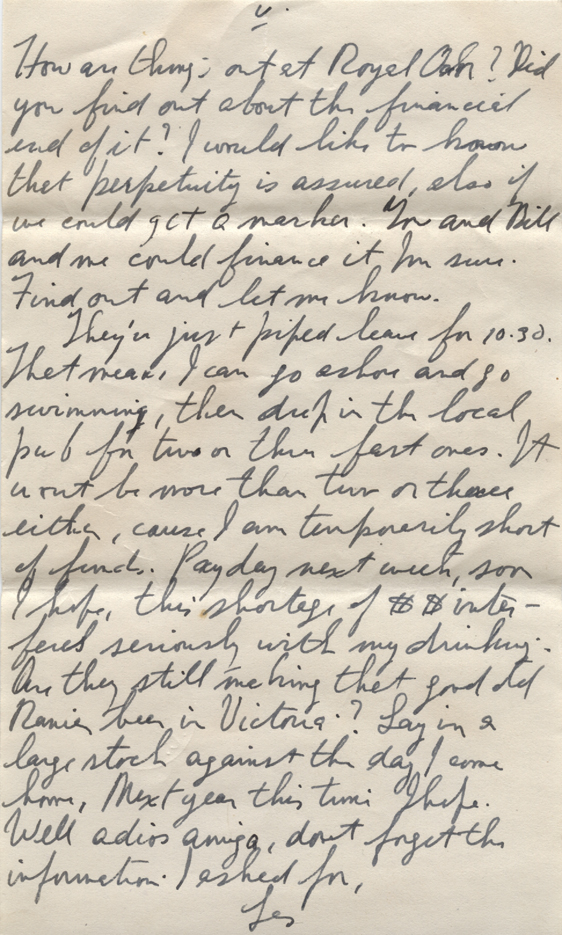 v.
How are things out at Royal Oak? Did
you find out about the financial
end of it? I would like to know
that perpetuity is assured, also if
we could get a marker. You and Bill
and me could finance it I'm sure.
Find out and let me know.
They've just piped leave for 10.30.
That means I can go ashore and go
swimming, then drop in the local
pub for two or three fast ones. It
wont be more than two or three
either, cause I am temporarily short
of funds. Payday next week, soon
I hope, this shortage of $ $ inter-
feres seriously with my drinking.
Are they still making that good old
Ranier beer in Victoria? Lay in a
large stock against the day I come
home, Next year this time I hope.
Well adios amiga, dont forget the
information I asked for,
Les